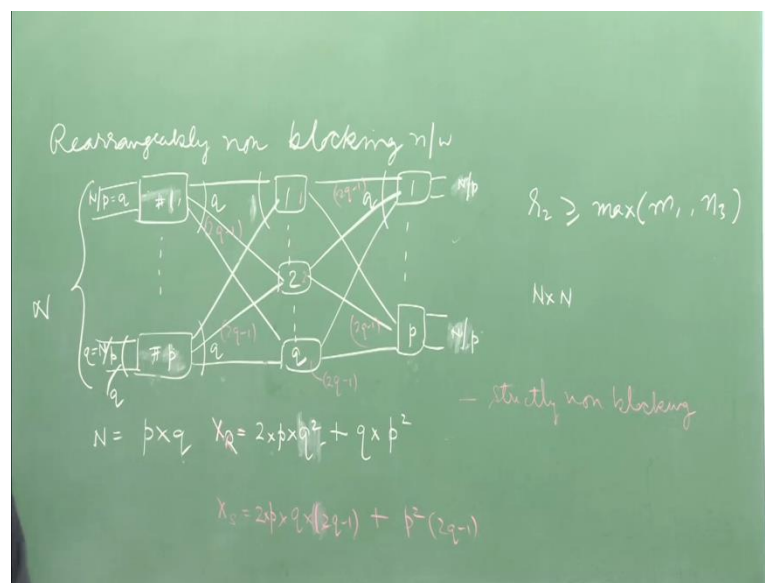 Rearrangeably non blocking n/w
N/p=q #1 q (2q-1) 1 (2q-1) q 1 N/p
r2 ≥ max(m1, n3)
N
2
N×N
q=N/p #p (2q-1) q q (2q-1) p N/p
q
(2q-1)
- strictly non blocking
N = p×q XR = 2×p×q² + q×p²
Xs = 2×p×q×(2q-1) + p²(2q-1)